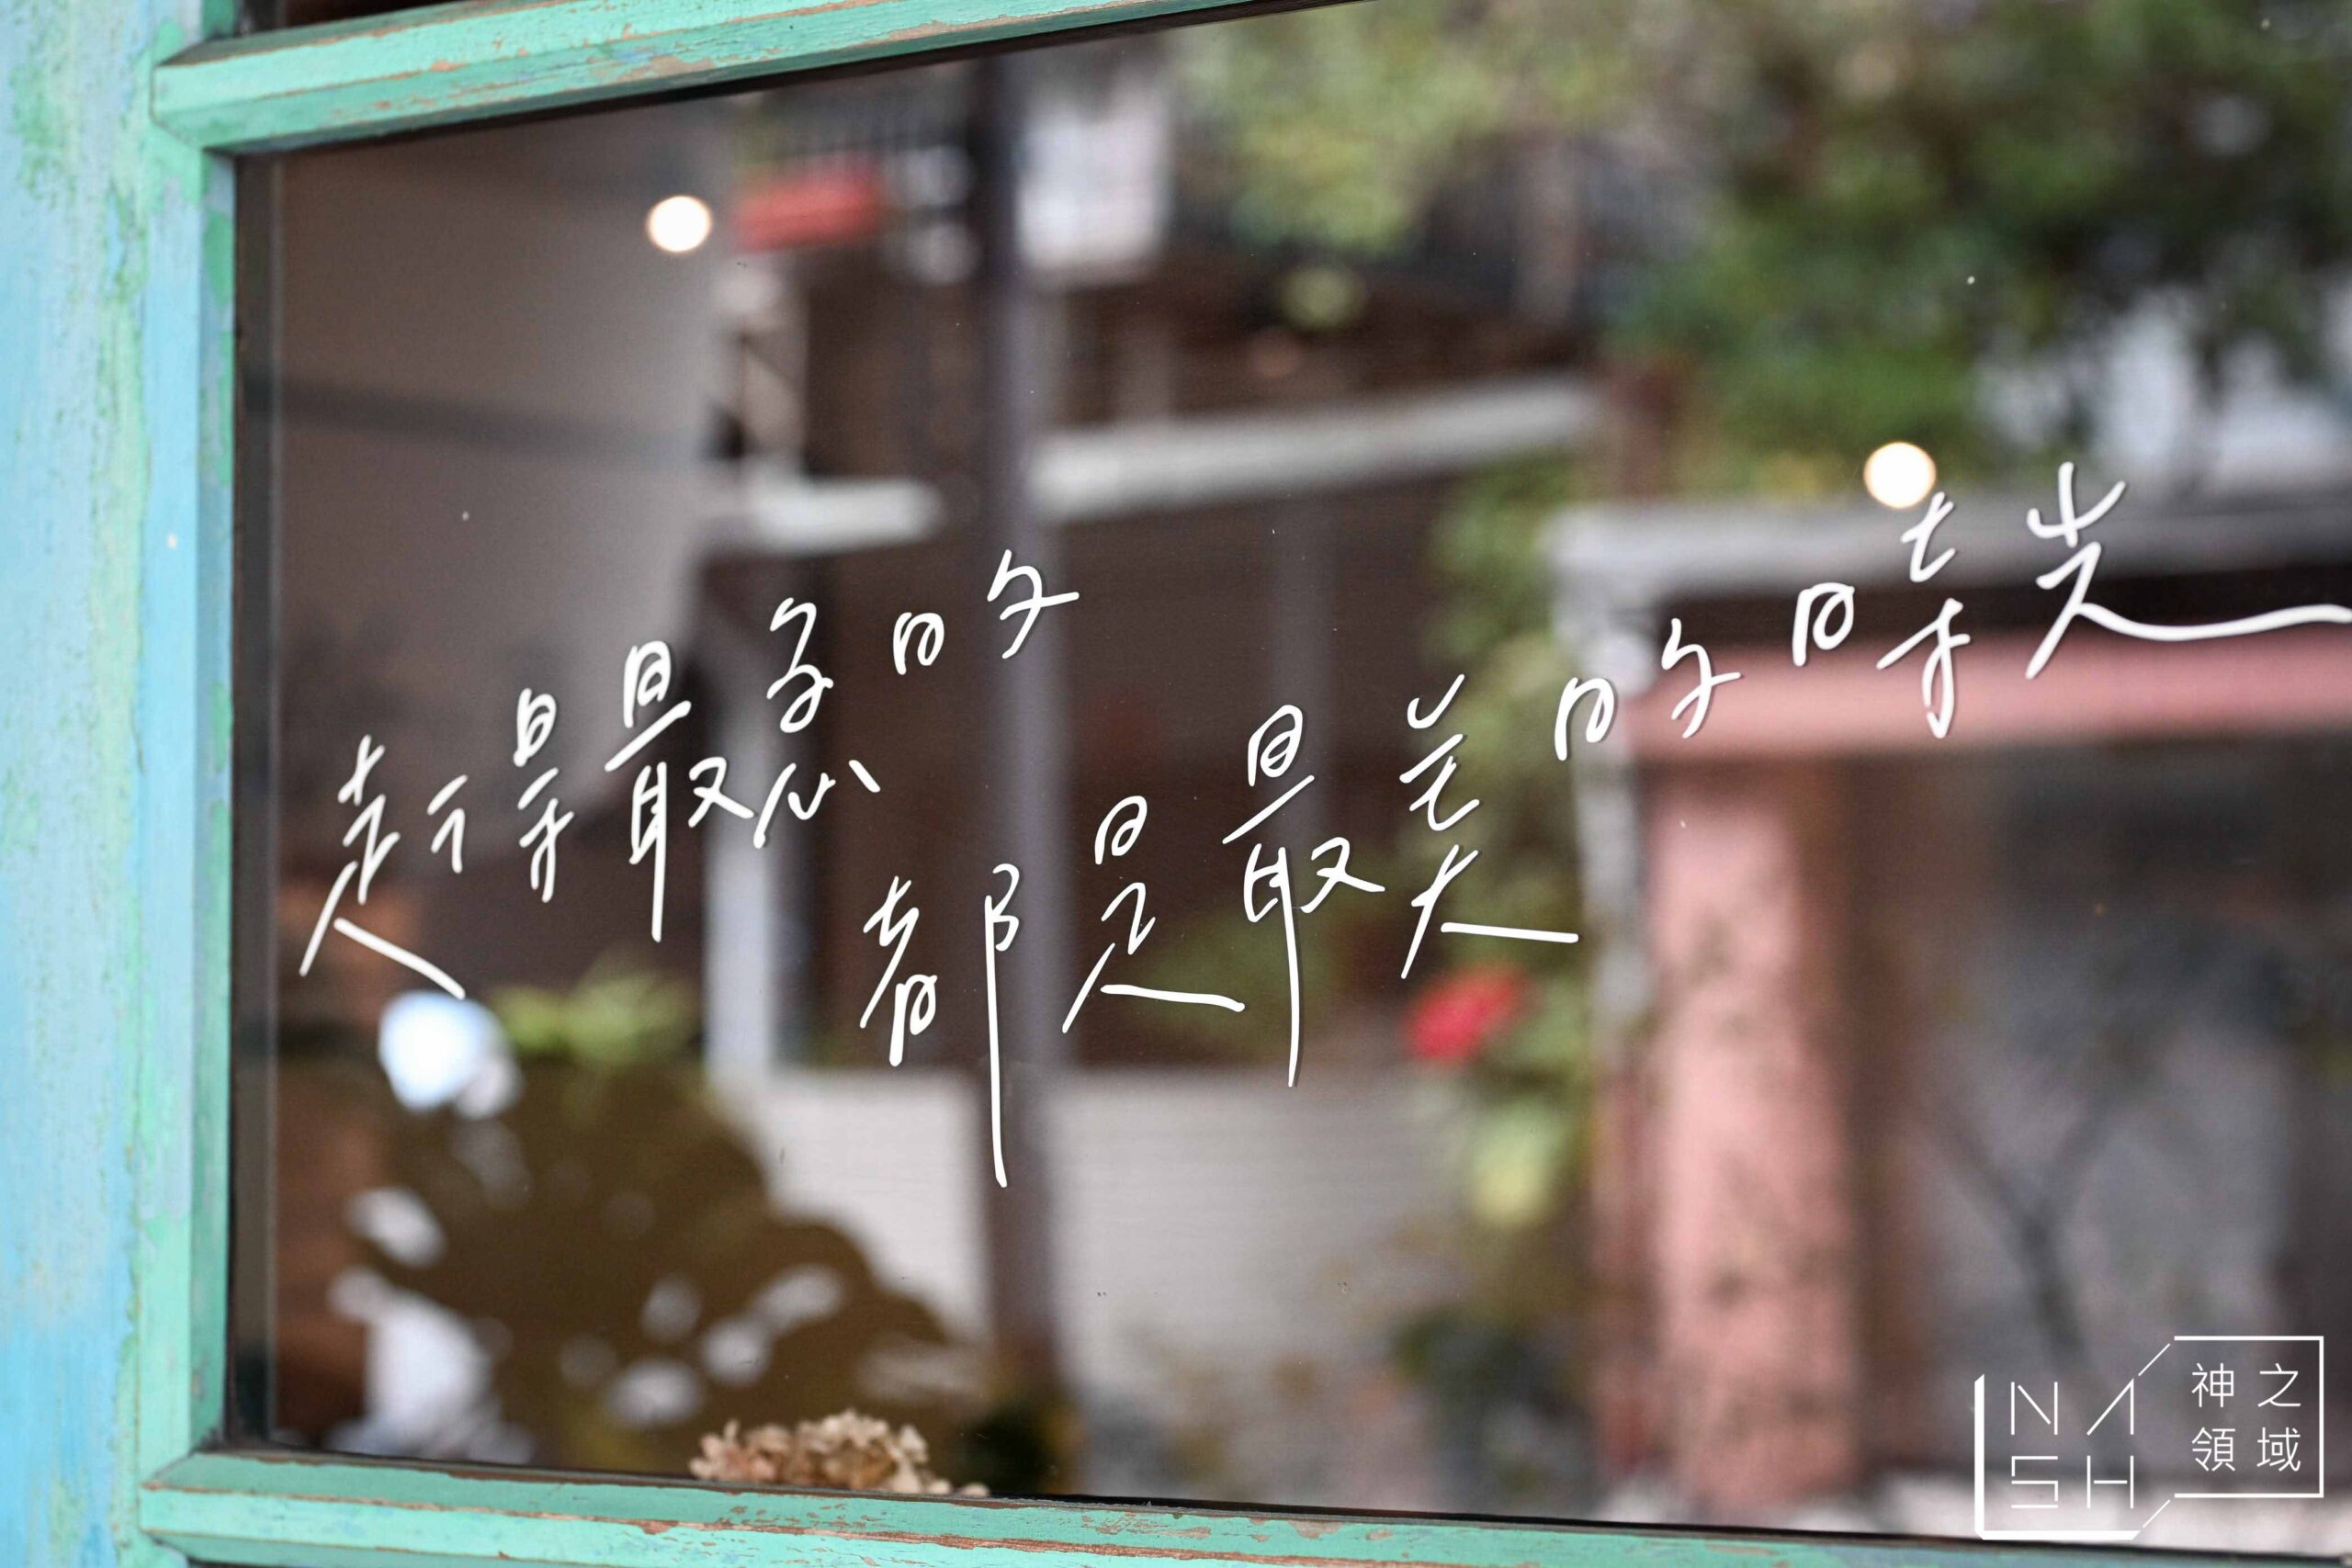 走得最急的
都是最美的時光
NASH
神之
領域